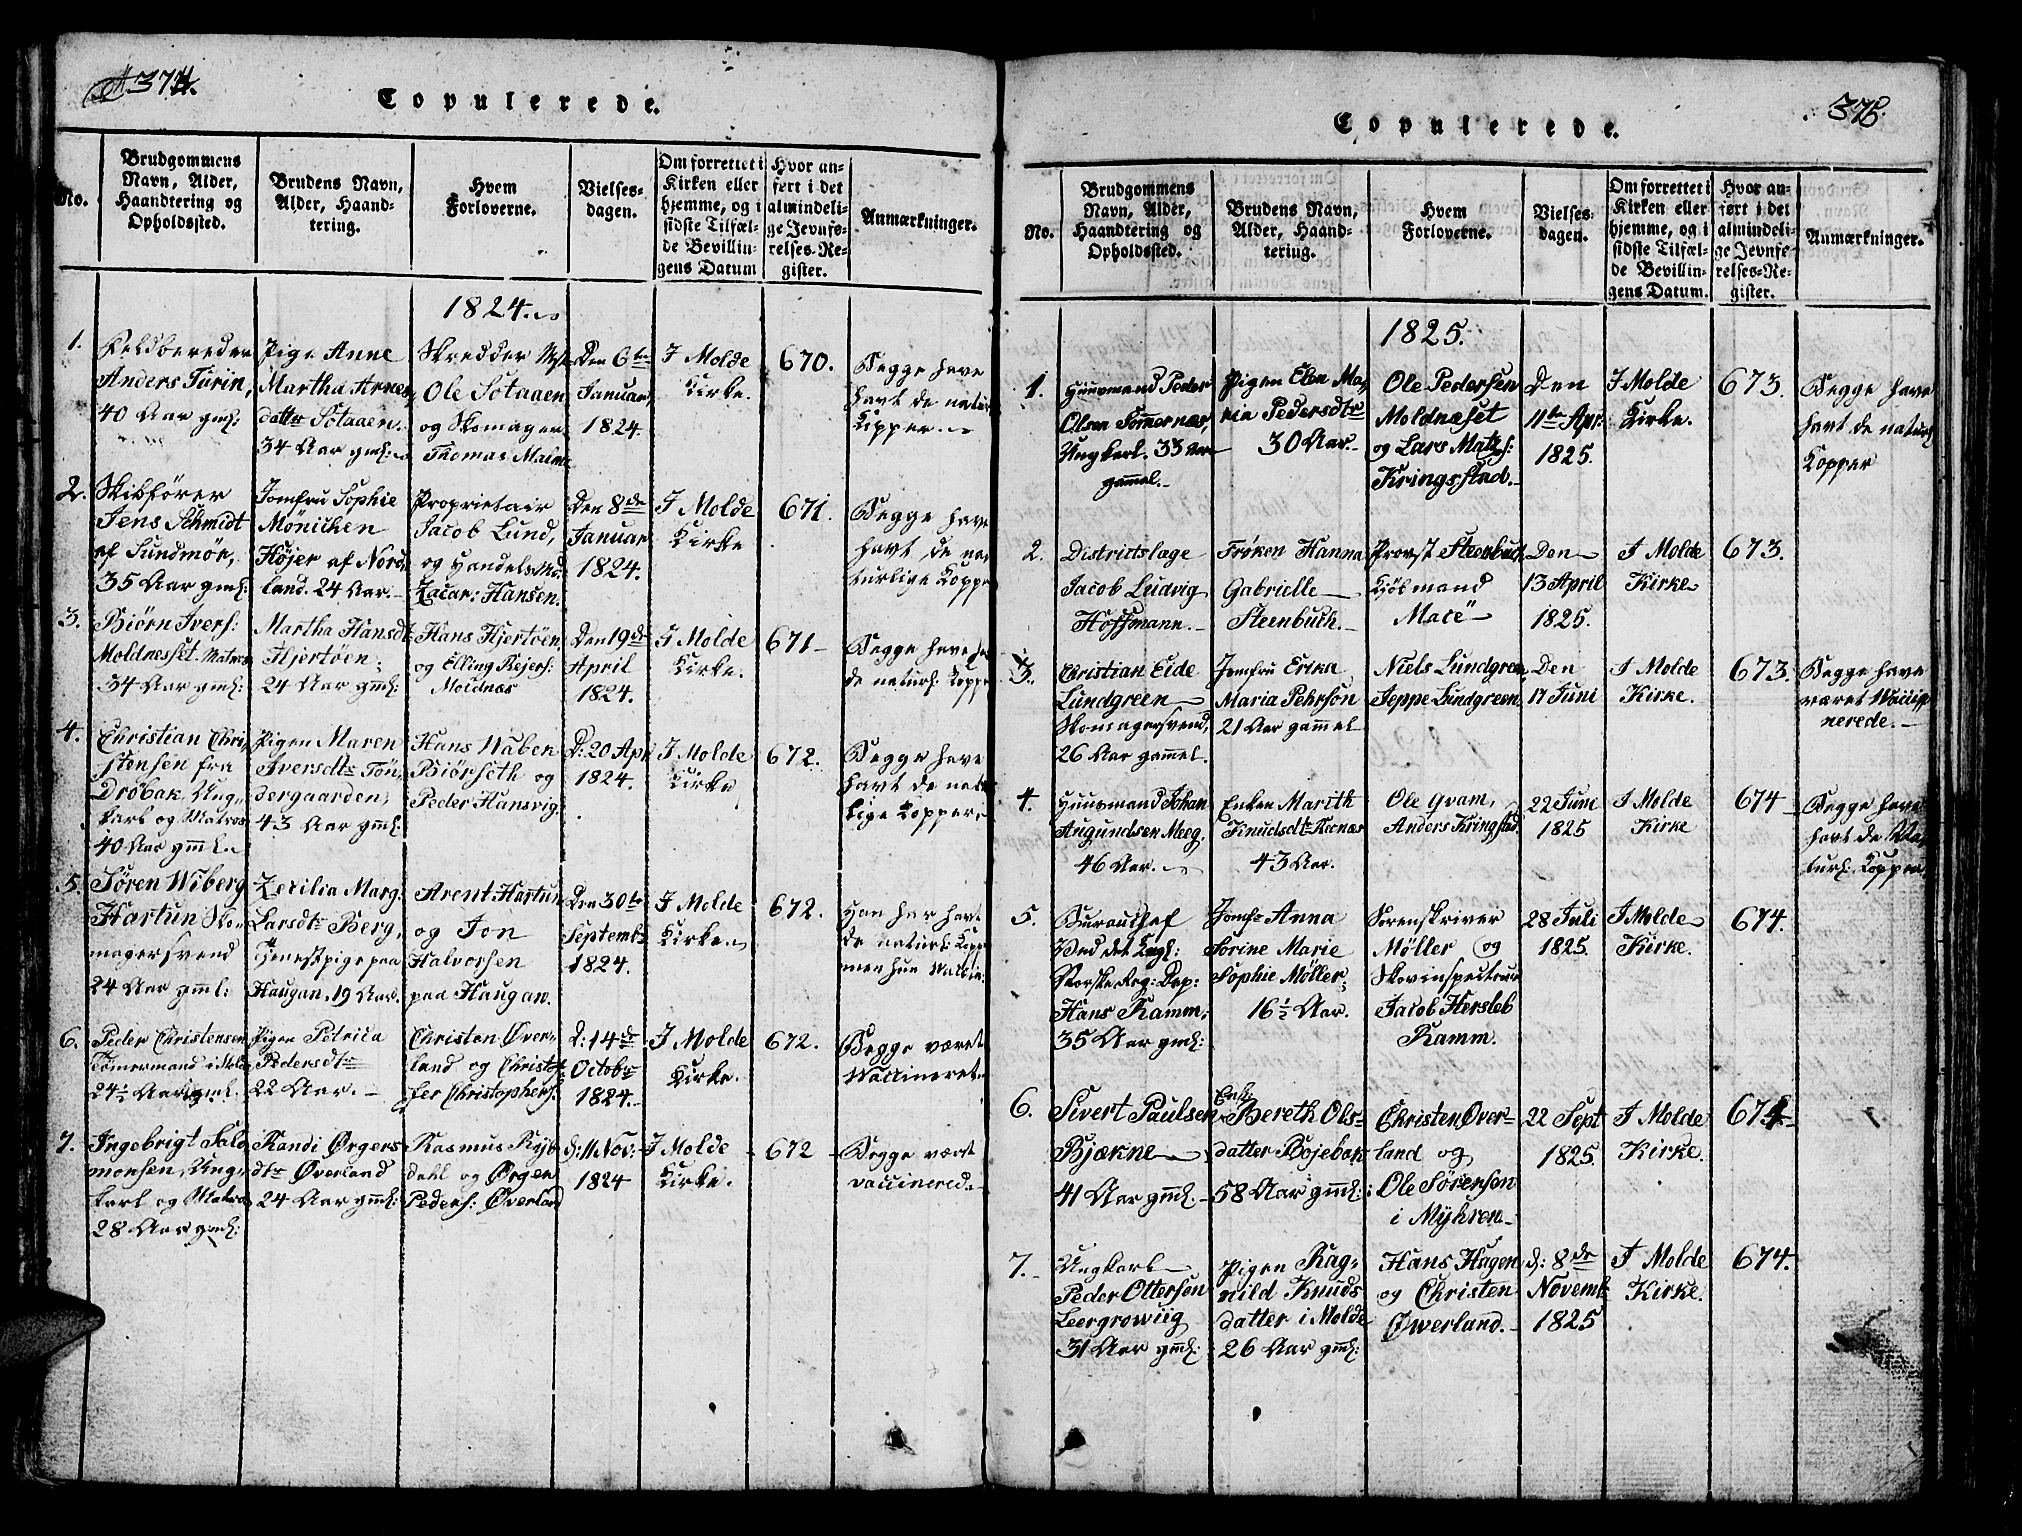 374.
Copulerede.
No.
Brudgommens
Navn, Alder,
Haandtering og
Opholdssted.
Brudens Navn,
Alder, Haand-
tering.
Hvem
Forloverne.
Vielses-
dagen.
Om forrettet i
Kirken eller
hjemme, og i
sidste Tilfæl-
de Bevillin-
gens Datum
Hvor an-
ført i det
almindeli-
ge Jevnfø-
relses-Re-
gister.
Anmærkninger.
1824.
1.
Feldbereder
Anders Turin,
40 Aar gml:
Pige Anne
Martha Arnes
datter Sotaaen
34 Aar gml:
Skredder
Ole Sotaaen
og Skomager
Thomas Malme
Den 6te
Januar,
1824.
I Molde
Kirke.
670.
Begge have
havt de natur
Kopper.
2.
Skibfører
Jens Schmidt
af Sundmör,
35 Aar gml:
Jomfru Sophie
Mönicken
Høijer af Nord,
land. 24 Aar.
Proprietair
Jacob Lund,
og Handelsmd:
Zacar: Hansen.
Den 8de
Januar
1824.
I Molde
Kirke
671.
Begge have
havt de na
turlige Koppe
3.
Biörn Ivers:
Moldnesset Matros
34 Aar gml:
Martha Hansdt
Hjertöen,
24 Aar gml:
Hans Hjertöen,
og Elling Rejers:
Moldnæs
Den 19de
April
1824.
I Molde
Kirke.
671
Begge have
de naturl. Koppe
4.
Christian Chri
stensen fra
Dröbak, Ung
karl og Matros
40 Aar gml.
Pigen Maren
Iversdtr Tön
dergaarden,
43 Aar gml:
Hans Waben
Biörseth og
Peder Hansvig.
D: 20 Apr
1824.
I Molde
Kirke
672.
Begge have
havt de natu
lige Kopper
5.
Søren Wiberg
Hartun Sko
magersvend
24 Aar gml:
Zecilia Marg:
Larsdtr Berg,
Tjenestpige paa
Haugan, 19 Aar.
Arent Hartun
og Jon
Halvorsen
paa Haugan.
Den 30te
Septembr
1824.
I Molde
Kirke.
672.
Han har havt
de naturl: Kopp
men hun Vaccin:
6.
Peder Christensen
Tömermand i Molde
24½ Aar gml.
Pigen Petrica
Pedersdtr
22 Aar.
Christen Över-
land og Christo
fer Christophers:
D: 14de
Octobr
1824.
I Molde
Kirke.
672.
Begge været
Vaccineret.
7.
Ingebrigt Salo
monsen, Ung
karl og Matros
28 Aar gml:
Randi Örgers
dtr Överland
24 Aar gml:
Rasmus Rejb
dahl og Örgen
Peders: Överland
d: 11 Nov:
1824
I Molde
Kirke.
672
Begge været
vaccinered.
375.
Copulerede.
No.
Brudgommens
Navn, Alder,
Haandtering og
Opholdssted.
Brudens Navn,
Alder, Haand-
tering.
Hvem
Forloverne.
Vielses-
dagen.
Om forrettet i
Kirken eller
hjemme, og i
sidste Tilfæl-
de Bevillin-
gens Datum.
Hvor an-
ført i det
almindeli-
ge Jevnfø-
relses-Re-
gister.
Anmærkninger.
1825.
1.
Huusmand Peder
Olsen Sömernæs,
Ungkarl. 33 Aar
gammel.
Pigen Elen Ma,
ria Pedersdtr
30 Aar.
Ole Pedersen
Moldnæset
og Lars Mats:
Kringsstad.
Den
11te Apr:
1825.
I Molde
Kirke.
673.
Begge have
havt de naturl
Kopper
2.
Districtslæge
Jacob Ludvig
Hoffmann.
Fröken Hanna
Gabrielle
Steenbuch.
Provst Steenbuch
Kjöbmand
Macë
Den
13 April
1825.
I Molde
Kirke
673.
3.
Christian Eide
Lundgreen
Skomagersvend,
26 Aar gammel.
Jomfru Erika
Maria Pehrson
21 Aar gammel
Niels Lundgreen,
Jeppe Lundgreen.
Den
17 Juni
I Molde
Kirke.
673.
Begge have
været Vacci
nerede.
4.
Huusmand Johan
Augundsen Meeg,
46 Aar.
Enken Marith
Knudsdtr Reenæs
43 Aar.
Ole Qvam,
Anders Kringstad.
22 Juni
1825
I Molde
Kirke
674
Begge have
havt de Na,
turl. Kopper
5.
Burauchef
Ved det Kngl:
Norske Reg: Dep:
Hans Ramm,
35 Aar gml:
Jomfr Anna
Sorine Marie
Sophie Möller,
16½ Aar.
Sorenskriver
Möller og
Skovinspecteur
Jacob Hersleb
Ramm.
28 Juli
1825.
I Molde
Kirke.
674.
6.
Sivert Paulsen
Bjækne
41 Aar gml.
Enke
Bereth Ols-
datter Böjebak
58 Aar gml:
Christen Över-
land og
Ole Sörensen
i Myhren
22 Sept
1825.
I Molde
Kirke.
674
7.
Ungkarl
Peder Ottersen
Leergrowiig
31 Aar gml:
Pigen Rag-
nild Knuds
datter i Molde
26 Aar gml:
Hans Hagen
og Christen
Öwerland.
d: 8de
Novemb
1825
I Molde
Kirke.
674.